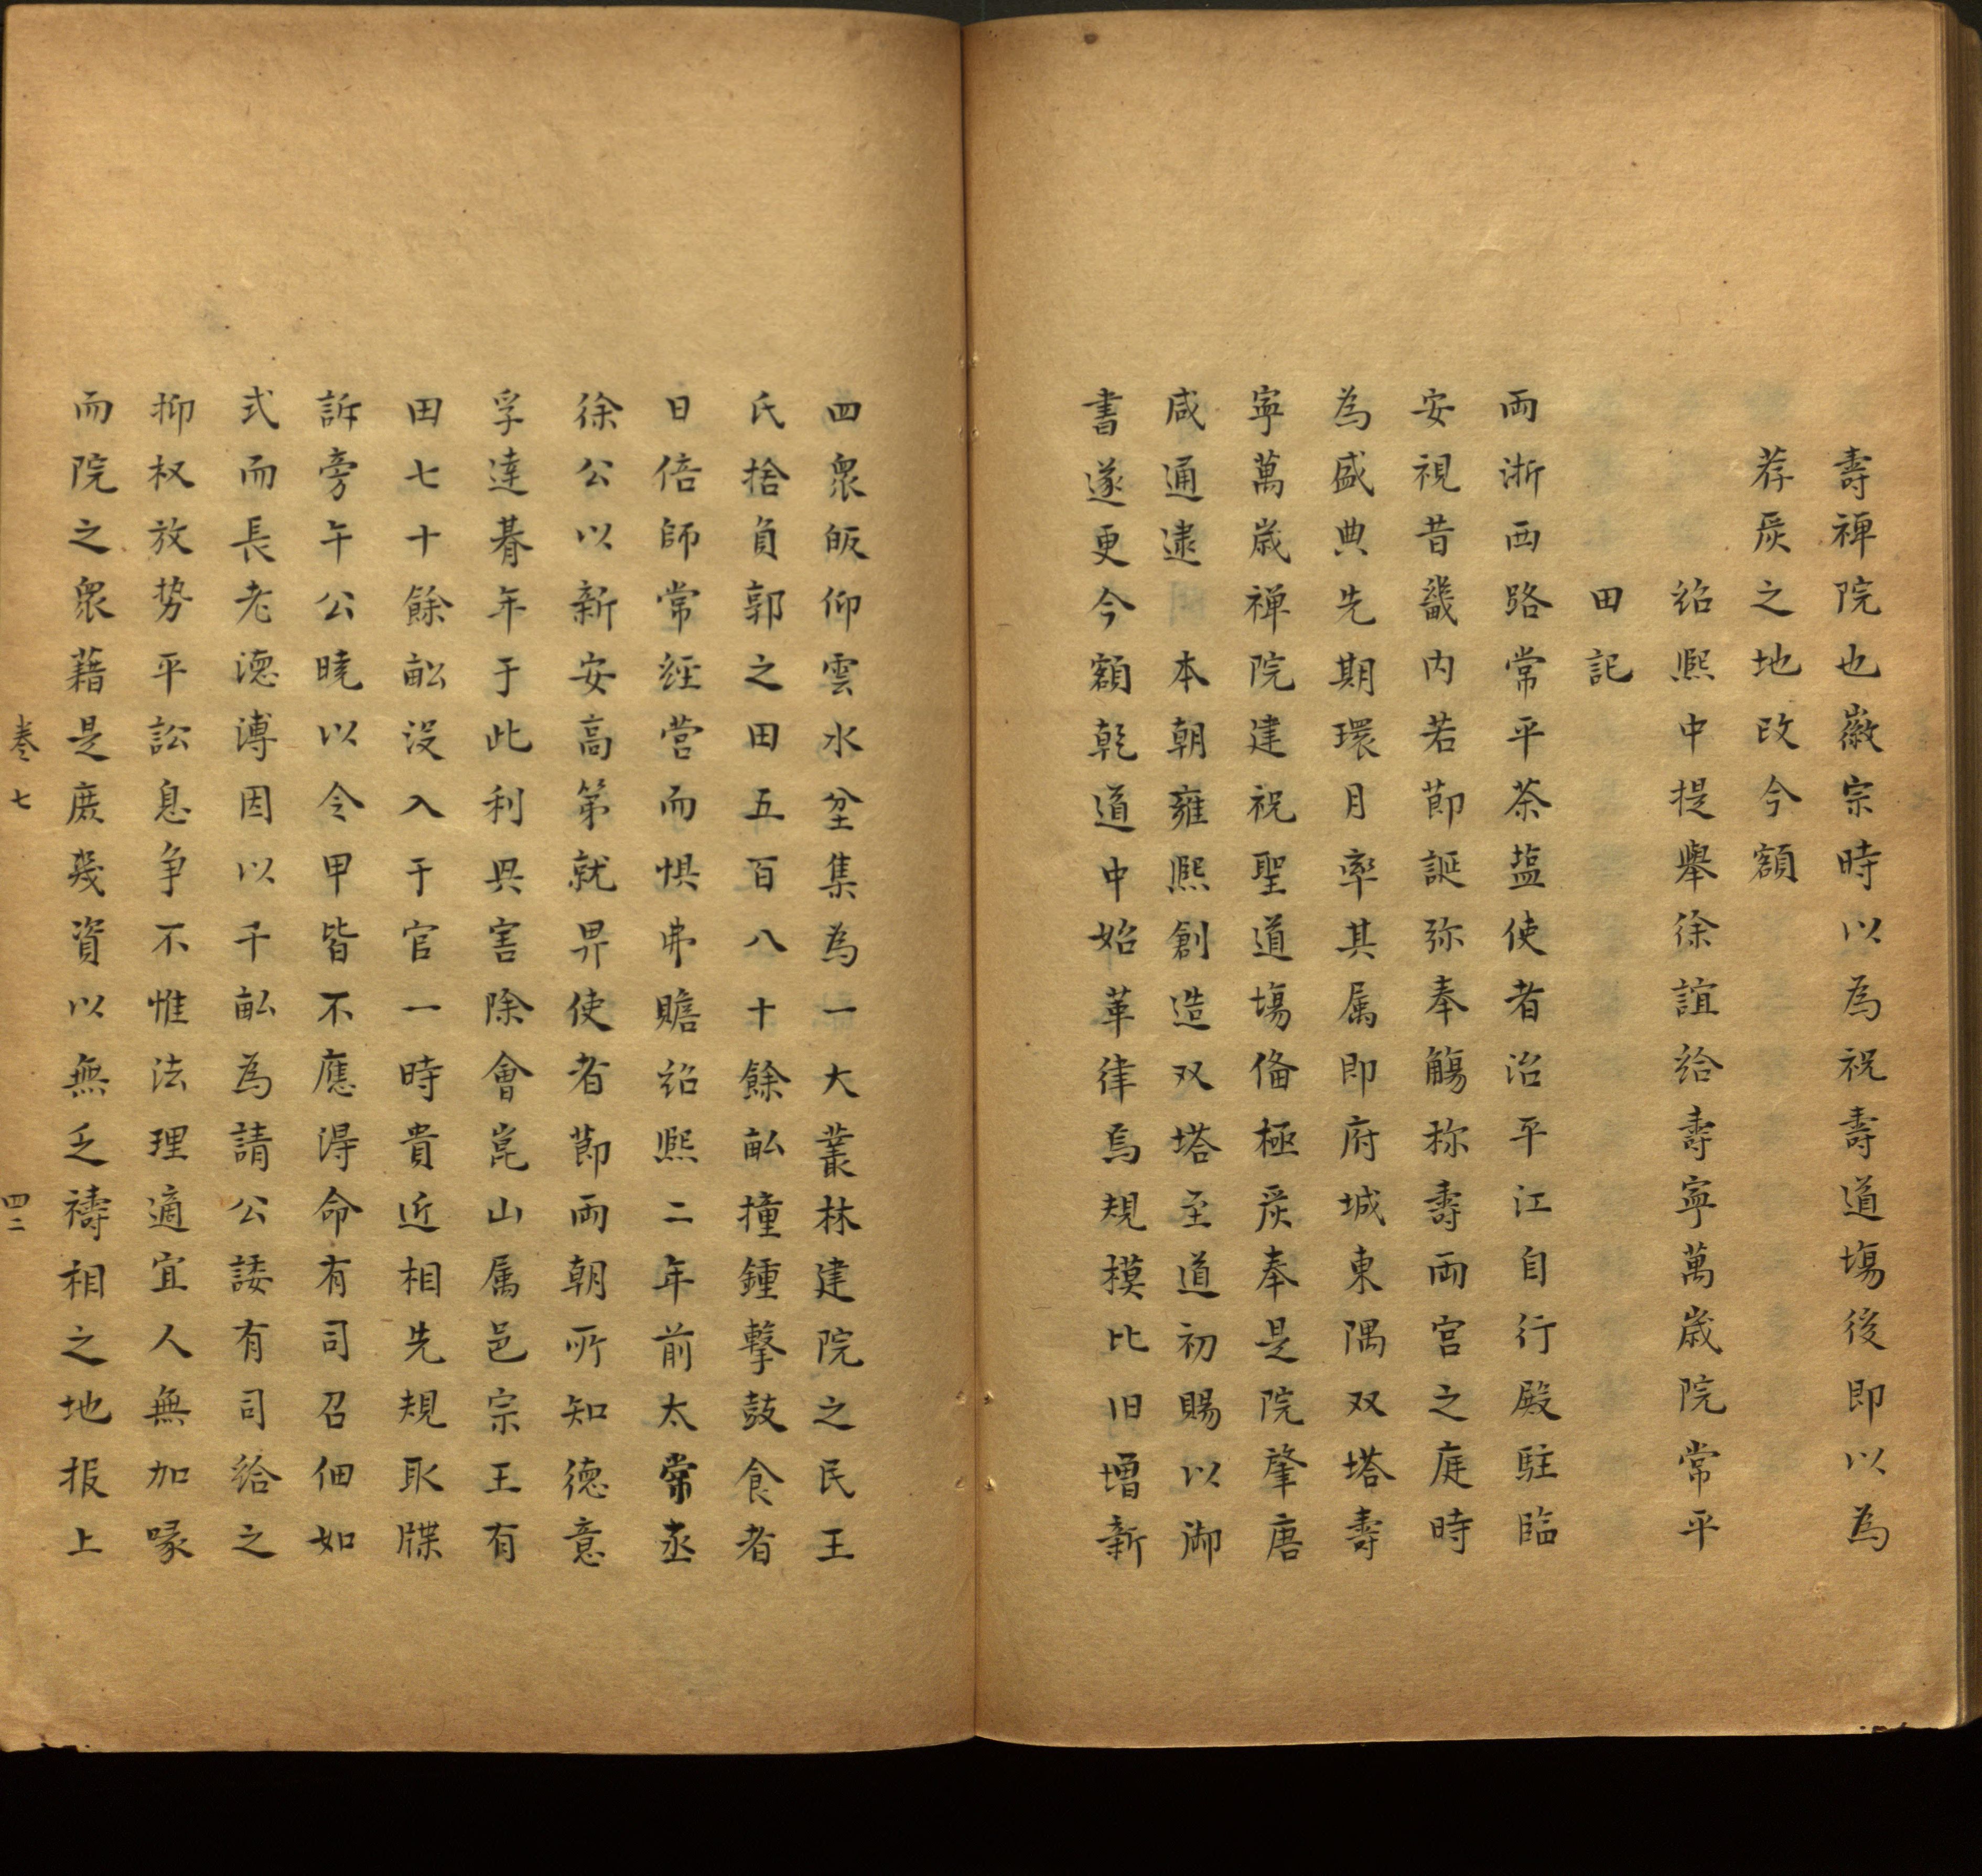 壽禅院也徽宗時以為祝壽道塲後即以為
荐嚴之地改今額
紹熙中提舉徐誼給壽寧萬歲院常平
田記
兩浙西路常平茶塩使者治平江自行殿駐臨
安視昔畿内若節誕弥奉觴称壽兩宫之庭時
為盛典先期環月率其属即府城東隅双塔壽
寧萬歲禅院建祝聖道塲俻極嚴奉是院肇唐
咸通逮本朝雍熙創造双塔至道初賜以御
書遂更今額乾道中始革律焉規模比旧增新
四衆皈仰雲水坌集為一大叢林建院之民王
氏捨負郭之田五百八十餘畝撞鍾擊鼓食者
日倍師常経营而惧弗贍紹熙二年前太常丞
徐公以新安高第就畀使者節兩朝所知德意
孚達朞年于此利具害除會崑山属邑宗王有
田七十餘畝没入于官一時貴近相先規取牒
訴旁午公曉以令甲皆不應淂命有司召佃如
式而長老德溥因以千畝為請公諉有司給之
抑权放势平訟息争不惟法理適宜人無加喙
而院之衆藉是庻幾資以無乏禱相之地报上
卷七
四二